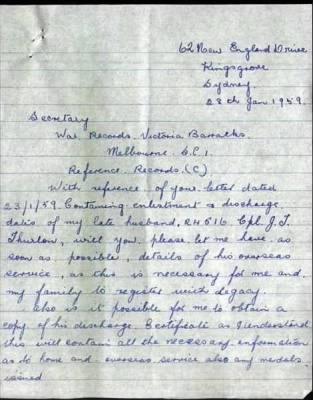 62 New England Drive
Kingsgrove
Sydney.
28th Jan 1959.
Secretary
War Records. Victoria Barracks.
Melbourne. S.C.1.
Reference Records (C)
With reference of your letter dated
23/1/59. Containing enlistment & discharge
dates of my late husband, Cpl J.T
Thurlow, will you please let me have as
soon as possible, details of his overseas
service, as this is necessary for me and
my family to register with Legacy.
also is it possible for me to obtain a
copy of his discharge. Certificate as I understand
this will contain all the necessary information
as to home and overseas service also any medals
issued